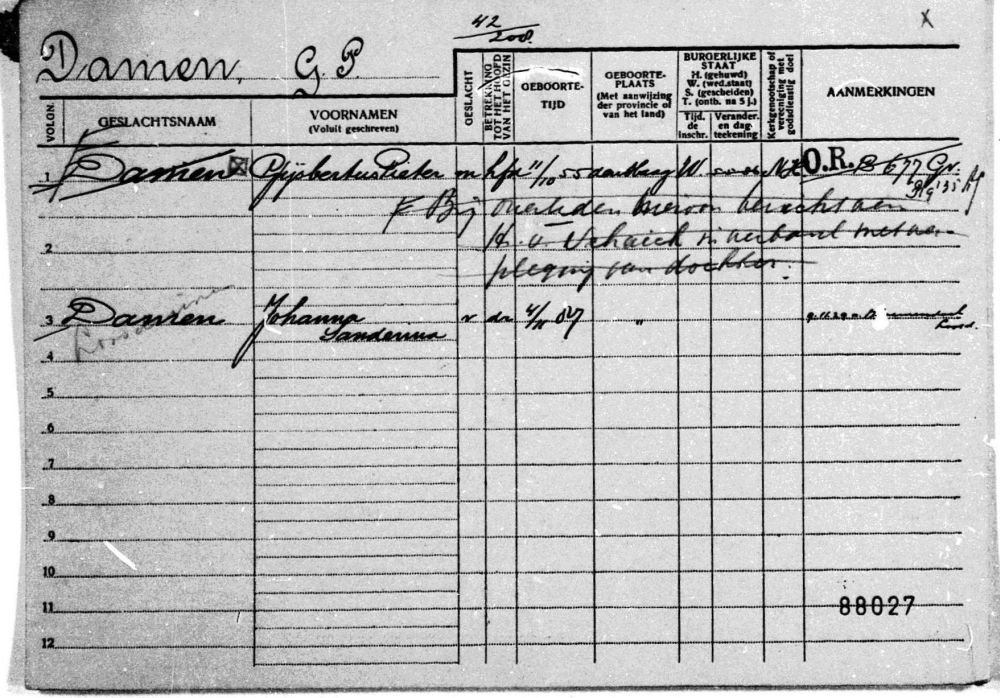 42
200.
X
Damen, G P.
VOLGN.
GESLACHTSNAAM
VOORNAMEN
(Voluit geschreven)
GESLACHT
BETREKKING
TOT HET HOOFD
VAN HET GEZIN
GEBOORTE-
TIJD
GEBOORTE-
PLAATS
(Met aanwijzing
der provincie of
van het land)
BURGERLIJKE
STAAT
H. (gehuwd)
W. (wed.staat)
S. (gescheiden)
T. (ontb. na 5 j.)
Tijd.
de
inschr.
Verander.
en dag-
teekening
Kerkgenootschap of
vereeniging met
godsdienstig doel
AANMERKINGEN
1 Damen Gijsbertus Pieter m hfd 11/10 55 den Haag W. N.H. O.R. B 677 Gv.
9/9 '35
Bij overleden hiervan bericht aan
H. v. in verband met
pleging van dochter.
2
3 Damen Johanna v dr 4/11 87 "
Sanderina
4
5
6
7
8
9
10
11 88027
12